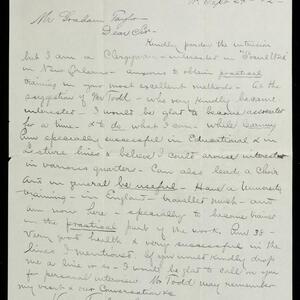 Mr Graham Taylor
Dear Sir-
Kindly pardon the intrusion
but I am a Clergyman - interested in
in New Orleans - anxious to obtain practical
training in your most excellent methods - At the
suggestion of Mr Todd - who very kindly became
interested - I would be glad to become
for a time - & to do what I can - while earning
Am specially successful in Educational & in
Lecture lines & believe I could arouse interest
in various quarters - Can also lead a Choir
and in general be useful - Have a University
training - in England - travelled much - and
am now here - specially to become trained
in the practical part of the work. Am 38 -
Very good health & very successful in the
lines I mentioned. If you would kindly drop
me a line or so - I would be glad to call on you
for personal interview. Mr Todd may remember
my visit & our Conversation